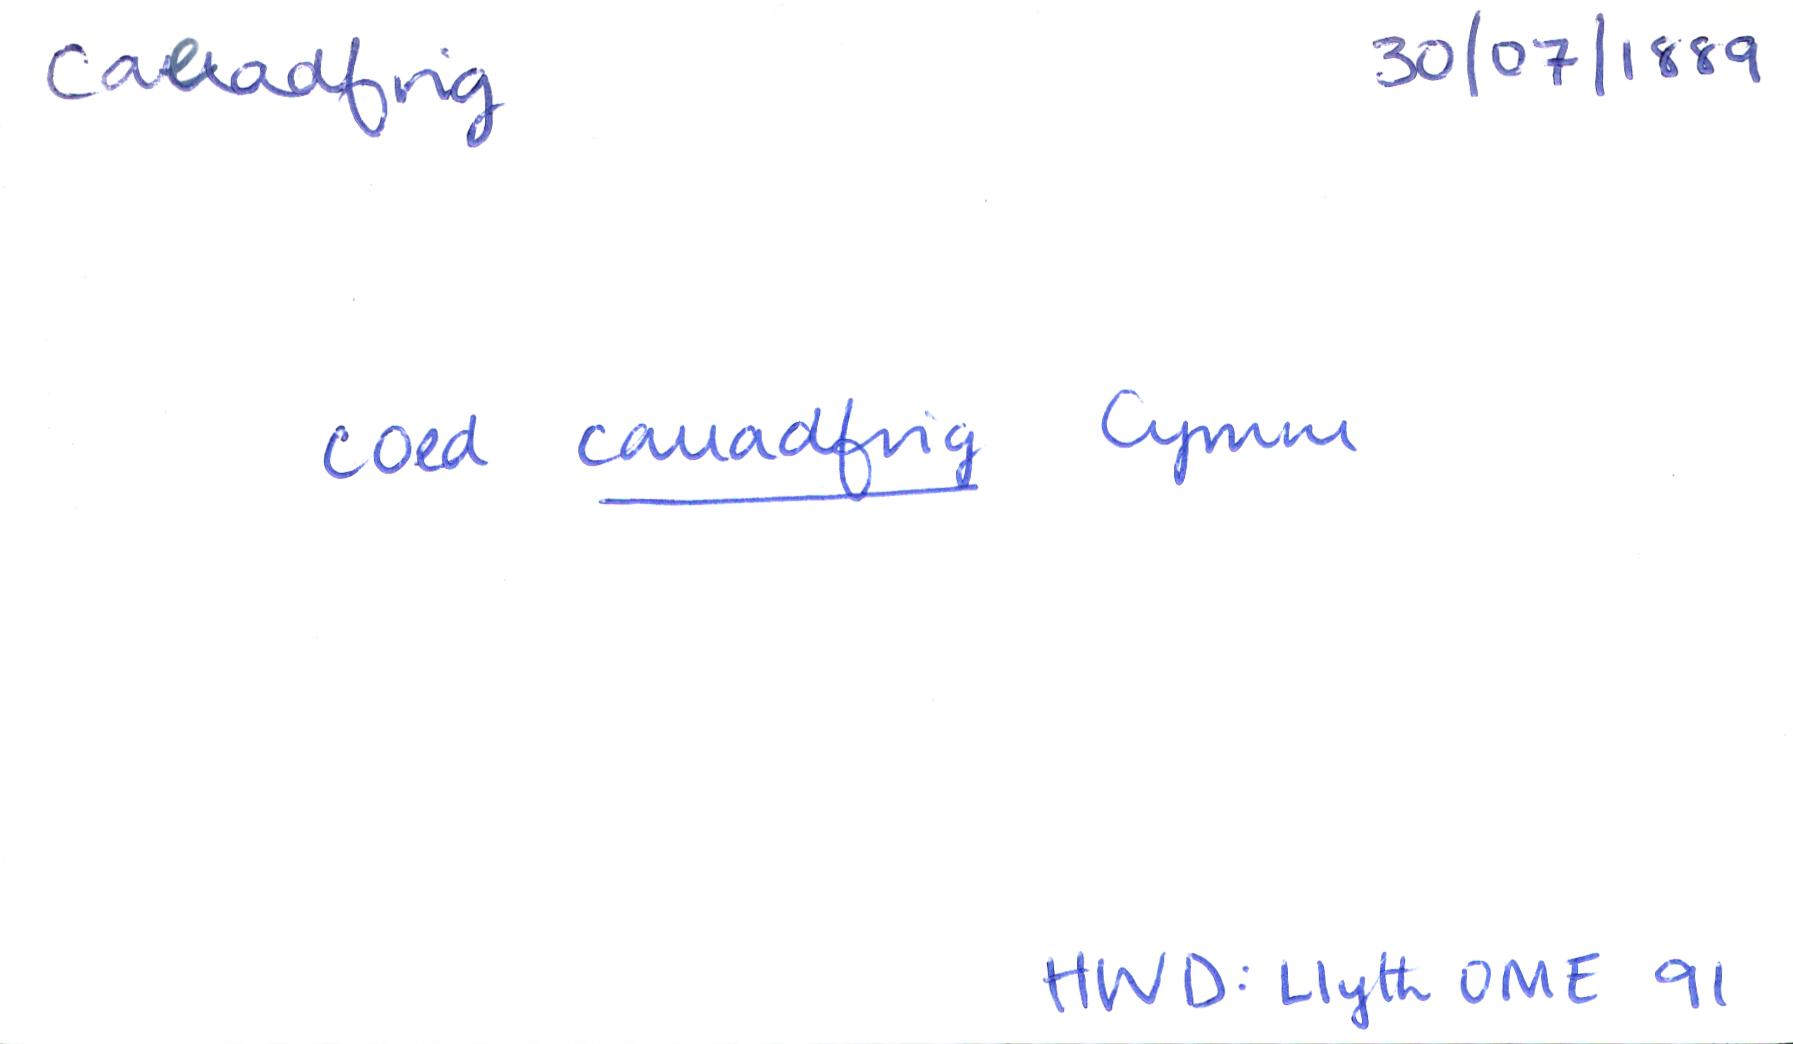 Caeadfrig 30/07/1889
coed cauadfrig Cymru
HWD: Llyth OME 91